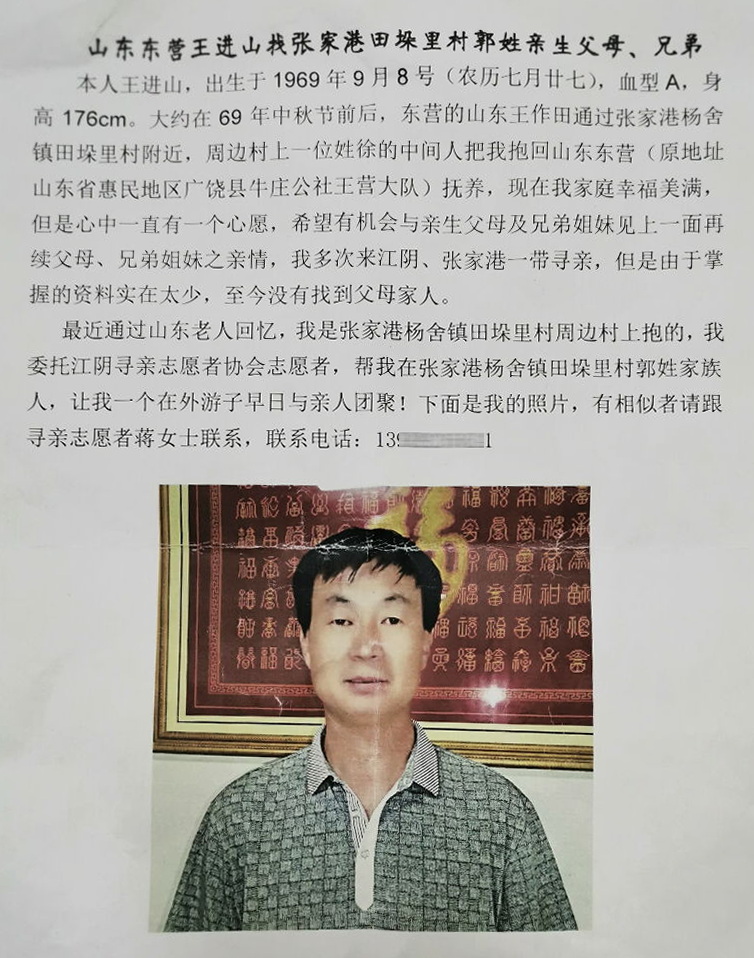 山东东营王进山找张家港田垛里村郭姓亲生父母、兄弟
本人王进山，出生于1969年9月8号（农历七月廿七），血型A，身
高176cm。大约在69年中秋节前后，东营的山东王作田通过张家港杨舍
镇田垛里村附近，周边村上一位姓徐的中间人把我抱回山东东营（原地址
山东省惠民地区广饶县牛庄公社王营大队）抚养，现在我家庭幸福美满，
但是心中一直有一个心愿，希望有机会与亲生父母及兄弟姐妹见上一面再
续父母、兄弟姐妹之亲情，我多次来江阴、张家港一带寻亲，但是由于掌
握的资料实在太少，至今没有找到父母家人。
最近通过山东老人回忆，我是张家港杨舍镇田垛里村周边村上抱的，我
委托江阴寻亲志愿者协会志愿者，帮我在张家港杨舍镇田垛里村郭姓家族
人，让我一个在外游子早日与亲人团聚！下面是我的照片，有相似者请跟
寻亲志愿者蒋女士联系，联系电话：139 1
福